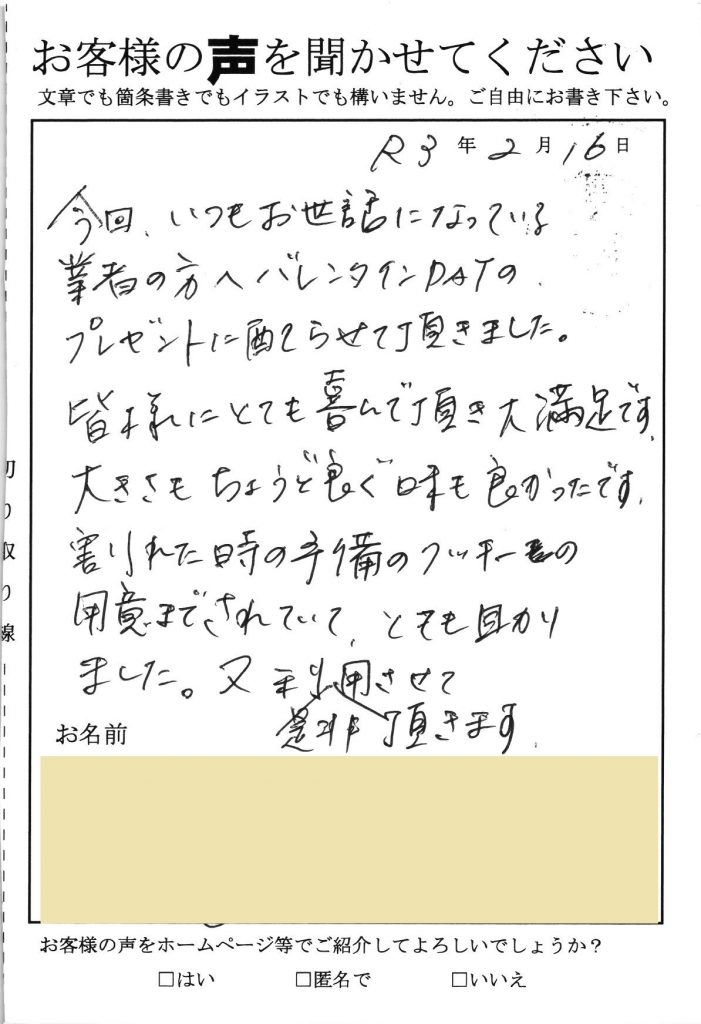 お客様の声を聞かせてください
文章でも箇条書きでもイラストでも構いません。ご自由にお書き下さい。
R3年2月16日
今回、いつもお世話になっている
業者の方へバレンタインDAYの
プレゼントに配てらせて頂きました。
皆様にとても喜んで頂き大満足です、
大きさもちょうど良く味も良かったです、
割れた時の予備のクッキーの
用意までされていて、とても助かり
ました。又 利用させて
是非 頂きます、
お名前
お客様の声をホームページ等でご紹介してよろしいでしょうか？
□はい □匿名で □いいえ
切り取り線